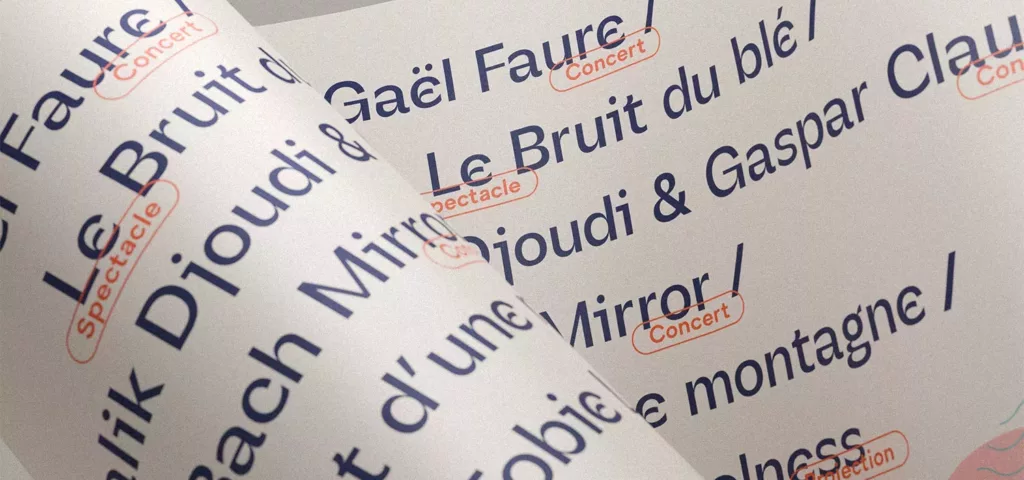 Faure /
Concert
Le Bruit
Spectacle
Djoudi &
Bach Mirro
d'une
Gaël Faure /
Concert
Le Bruit du blé /
pectacle
Djoudi & Gaspar Clau
Con
Mirror /
Concert
e montagne /